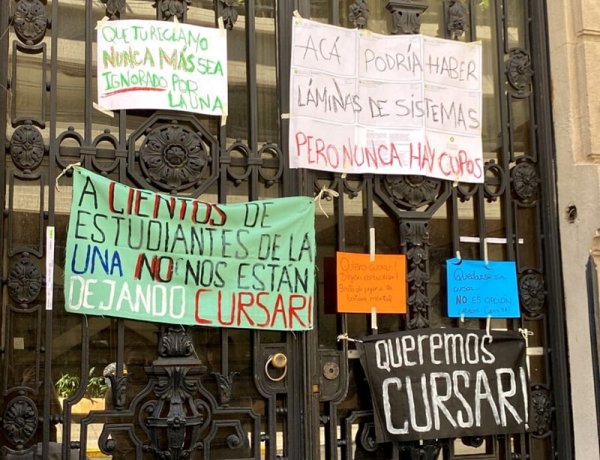 QUE TU RECLAMO
NUNCA MÁS SEA
IGNORADO POR
LA UNA
ACÁ PODRÍA HABER
LÁMINAS DE SISTEMAS
PERO NUNCA HAY CUPOS
A CIENTOS DE
ESTUDIANTES DE LA
UNA NO NOS ESTÁN
DEJANDO CURSAR!
Quiero cursar!
Quedarse sin
cursar
NO ES OPCIÓN
QUEREMOS
CURSAR!